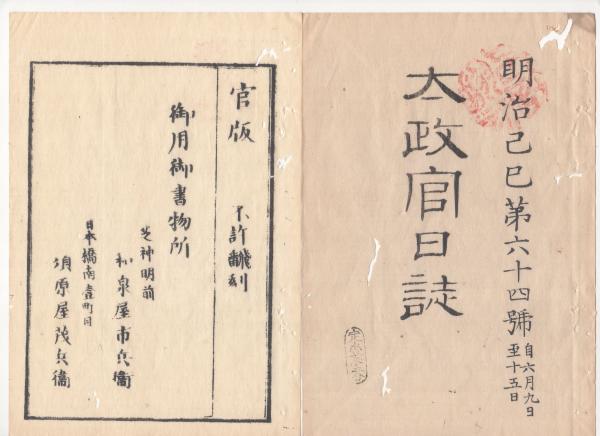 明治己巳第六十四號
自六月九日
至十五日
太政官日誌
官版
不許翻刻
御用御書物所
芝神明前
和泉屋市兵衞
日本橋南壹町目
須原屋茂兵衞